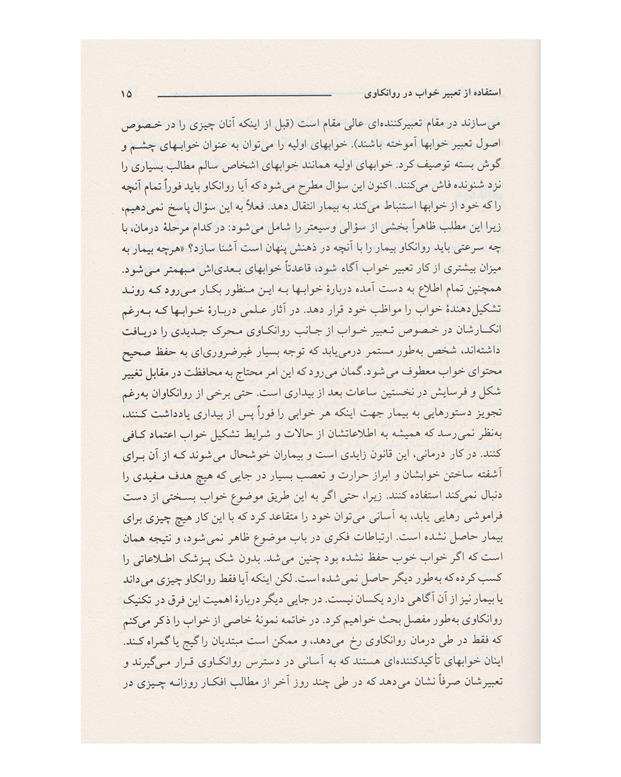 استفاده از تعبیر خواب در روانکاوی ۱۵
می‌سازند در مقام تعبیرکننده‌ای عالی مقام است (قبل از اینکه آنان چیزی را در خصوص
اصول تعبیر خوابها آموخته باشند). خوابهای اولیه را می‌توان به عنوان خوابهای چشم و
گوش بسته توصیف کرد. خوابهای اولیه همانند خوابهای اشخاص سالم مطالب بسیاری را
نزد شنونده فاش می‌کنند. اکنون این سؤال مطرح می‌شود که آیا روانکاو باید فوراً تمام آنچه
را که خود از خوابها استنباط می‌کند به بیمار انتقال دهد. فعلاً به این سؤال پاسخ نمی‌دهیم،
زیرا این مطلب ظاهراً بخشی از سؤالی وسیعتر را شامل می‌شود: در کدام مرحلهٔ درمان، با
چه سرعتی باید روانکاو بیمار را با آنچه در ذهنش پنهان است آشنا سازد؟ «هرچه بیمار به
میزان بیشتری از کار تعبیر خواب آگاه شود، قاعدتاً خوابهای بعدی‌اش مبهمتر می‌شود.
همچنین تمام اطلاع به دست آمده دربارهٔ خوابها به این منظور بکار می‌رود که روند
تشکیل‌دهندهٔ خواب را مواظب خود قرار دهد. در آثار علمی دربارهٔ خوابها که به‌رغم
انکارشان در خصوص تعبیر خواب از جانب روانکاوی محرک جدیدی را دریافت
داشته‌اند، شخص به‌طور مستمر درمی‌یابد که توجه بسیار غیرضروری‌ای به حفظ صحیح
محتوای خواب معطوف می‌شود. گمان می‌رود که این امر محتاج به محافظت در مقابل تغییر
شکل و فرسایش در نخستین ساعات بعد از بیداری است. حتی برخی از روانکاوان به‌رغم
تجویز دستورهایی به بیمار جهت اینکه هر خوابی را فوراً پس از بیداری یادداشت کنند،
به‌نظر نمی‌رسد که همیشه به اطلاعاتشان از حالات و شرایط تشکیل خواب اعتماد کافی
کنند. در کار درمانی، این قانون زایدی است و بیماران خوشحال می‌شوند که از آن برای
آشفته ساختن خوابشان و ابراز حرارت و تعصب بسیار در جایی که هیچ هدف مفیدی را
دنبال نمی‌کند استفاده کنند. زیرا، حتی اگر به این طریق موضوع خواب بسختی از دست
فراموشی رهایی یابد، به آسانی می‌توان خود را متقاعد کرد که با این کار هیچ چیزی برای
بیمار حاصل نشده است. ارتباطات فکری در باب موضوع ظاهر نمی‌شود، و نتیجه همان
است که اگر خواب خوب حفظ نشده بود چنین می‌شد. بدون شک پزشک اطلاعاتی را
کسب کرده که به‌طور دیگر حاصل نمی‌شده است. لکن اینکه آیا فقط روانکاو چیزی می‌داند
یا بیمار نیز از آن آگاهی دارد یکسان نیست. در جایی دیگر دربارهٔ اهمیت این فرق در تکنیک
روانکاوی به‌طور مفصل بحث خواهیم کرد. در خاتمه نمونهٔ خاصی از خواب را ذکر می‌کنم
که فقط در طی درمان روانکاوی رخ می‌دهد، و ممکن است مبتدیان را گیج یا گمراه کند.
اینان خوابهای تأکیدکننده‌ای هستند که به آسانی در دسترس روانکاوی قرار می‌گیرند و
تعبیرشان صرفاً نشان می‌دهد که در طی چند روز آخر از مطالب افکار روزانه چیزی در